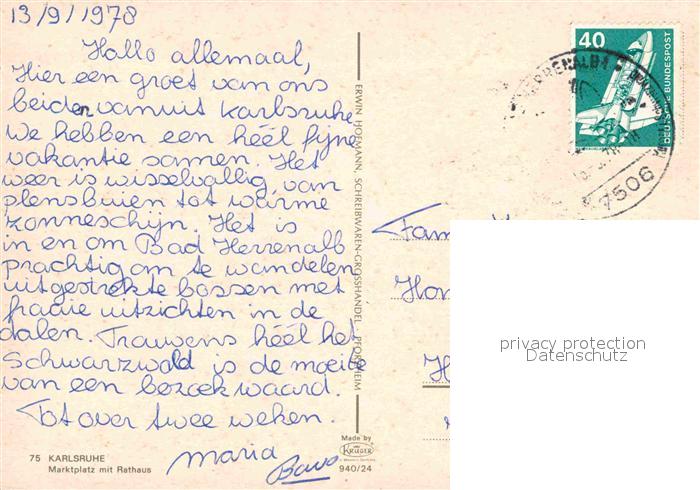 13/9/1978
Hallo allemaal,
Hier een groet van ons
beiden vanuit Karlsruhe
We hebben een héél fijne
vakantie samen. Het
weer is wisselvallig, van
plensbuien tot warme
zonneschijn. Het is
in en om Bad Herrenalb
prachtig om te wandelen
uitgestrekte bossen met
fraaie uitzichten in de
dalen. Trouwens héél het
Schwarzwald is de moeite
van een bezoek waard.
Tot over twee weken.
Maria
75 KARLSRUHE
Marktplatz mit Rathaus
ERWIN HOFMANN, SCHREIBWAREN-GROSSHANDEL PFORZHEIM
Made by
KRÜGER
940/24
40
DEUTSCHE BUNDESPOST
7506
Fam
privacy protection
Datenschutz